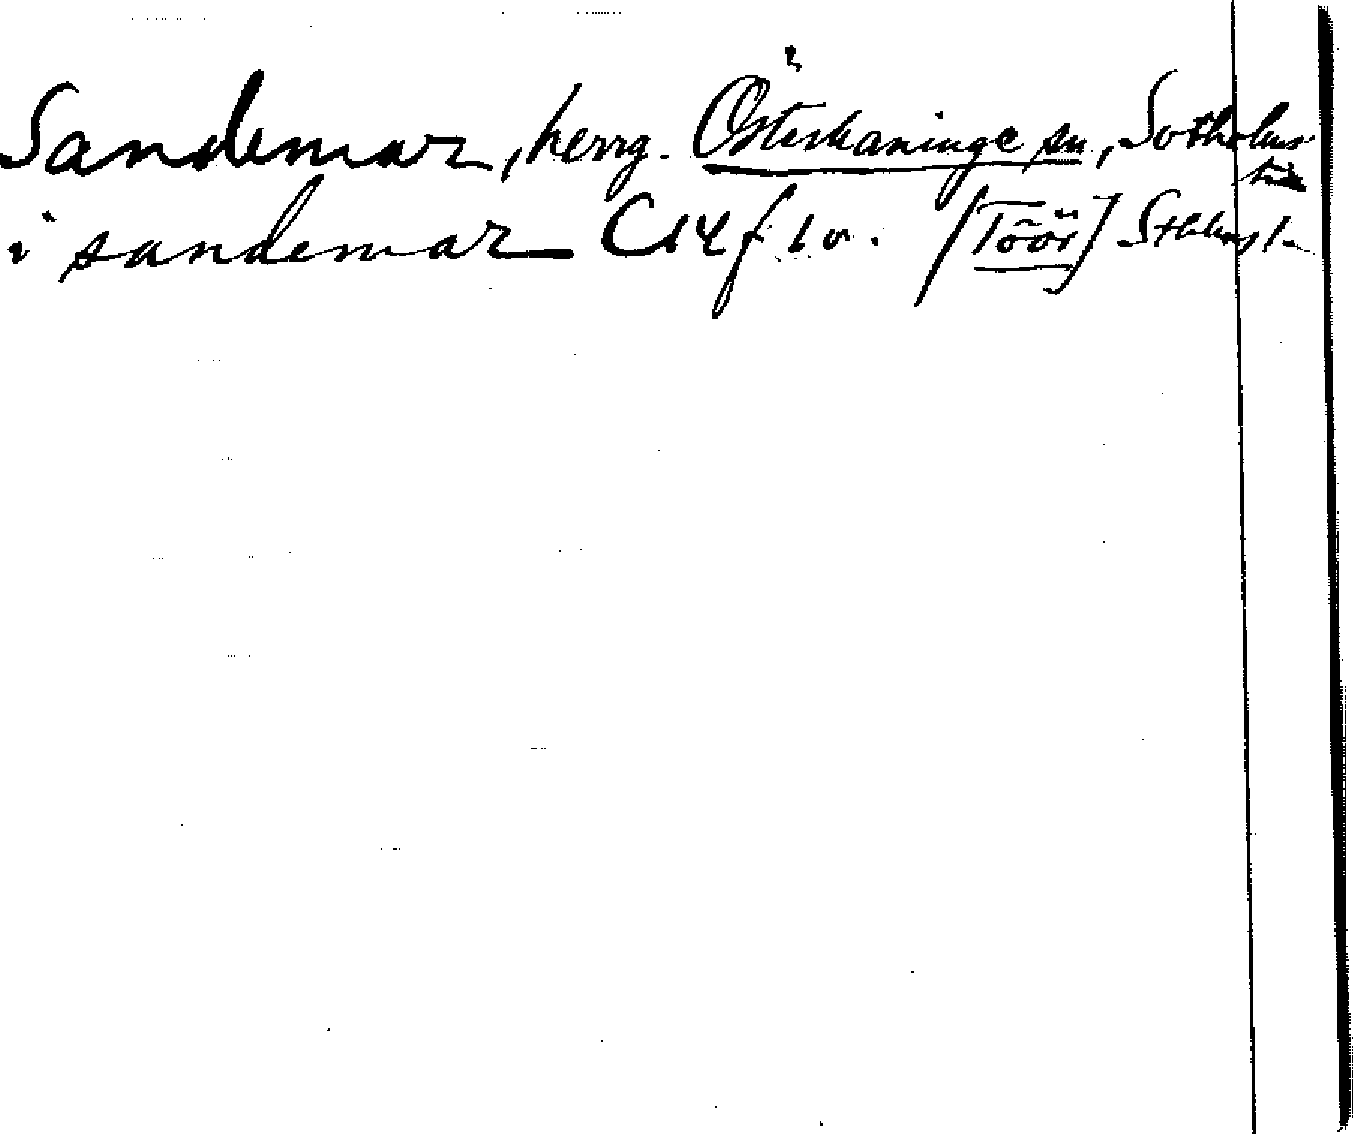 Sandemar, herrg. Österhaninge sn, Sotholms
i sandemar C 14 f 1 v. [Töör] Sthlms l.